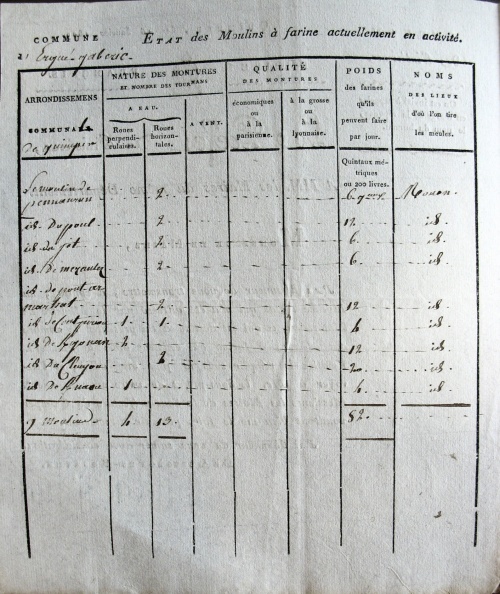 COMMUNE ÉTAT des Moulins à farine actuellement en activité.
d'Ergué-gaberic
ARRONDISSEMENS
COMMUNAL
De quimper
NATURE DES MONTURES
ET NOMBRE DES TOURNANS
A EAU.
Roues perpendi-
culaires.
Roues horizon-
tales.
A VENT.
QUALITÉ
DES MONTURES
économiques
ou
à la
parisienne.
à la grosse
ou
à la
lyonnaise.
POIDS
des farines
qu'ils
peuvent faire
par jour.
Quintaux mé-
triques
ou 200 livres.
NOMS
DES LIEUX
d'où l'on tire
les meules.
Le moulin de
pennanrun 2 6 Rouen
id. Du poul 2 12 id.
id. du jet 2 6 id.
id. De 2 6 id.
id. de pont ar
marhat 2 12 id.
id. 1 1 6 id.
id. De 2 12 id.
id. Du 2 id.
id. De 1 6 id.
9 Moulins 4 13 82